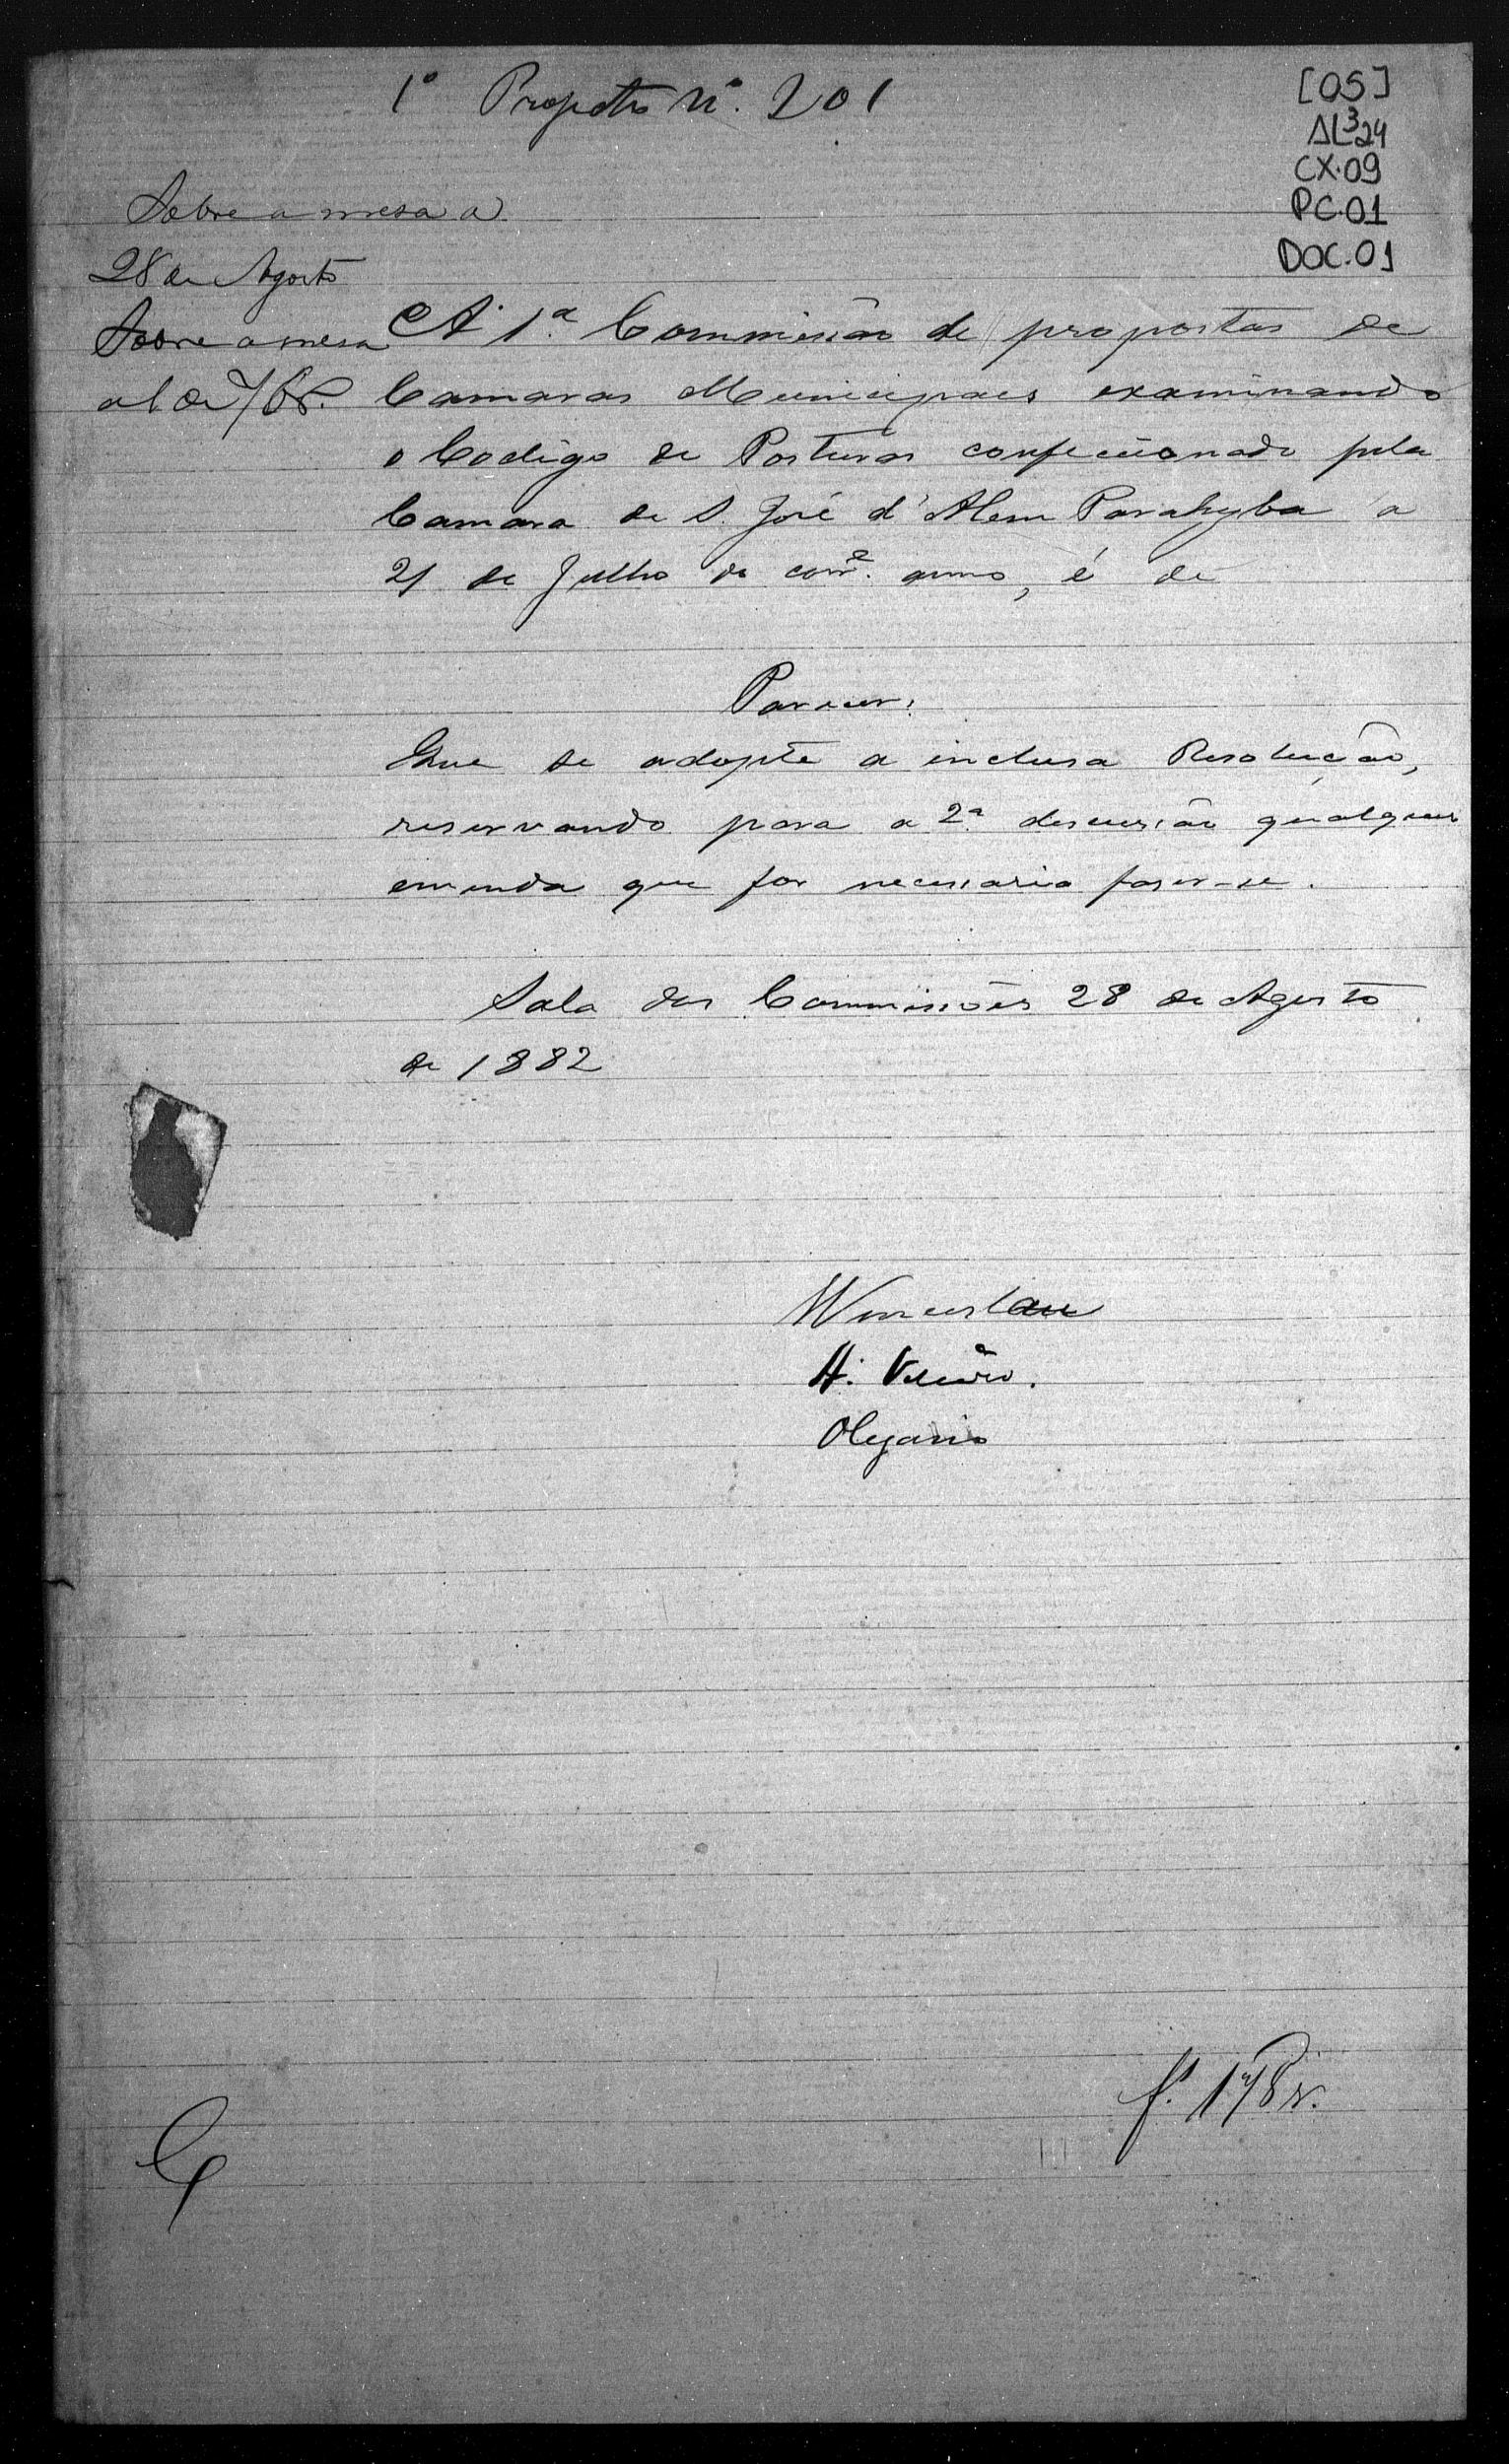 1º Projecto Nº. 201
[05]
AL³24
CX.09
PC.01
DOC.01
Sobre a mesa a
28 de Agosto
Sobre a mesa
A 1.ª Commissão de propostas de
Camaras Municipaes examinando
o Codigo de Posturas confeccionado pela
Camara de S. José d'Alem Parahyba a
21 de Julho do corr.e anno, é de
Parecer:
Que se adopte a inclusa Resolução,
reservando para a 2.ª discussão qualquer
emenda que for necessaria faser-se.
Sala das Commissões 28 de Agosto
de 1882
Wenceslau
H.
Olegario
f. 178 v.